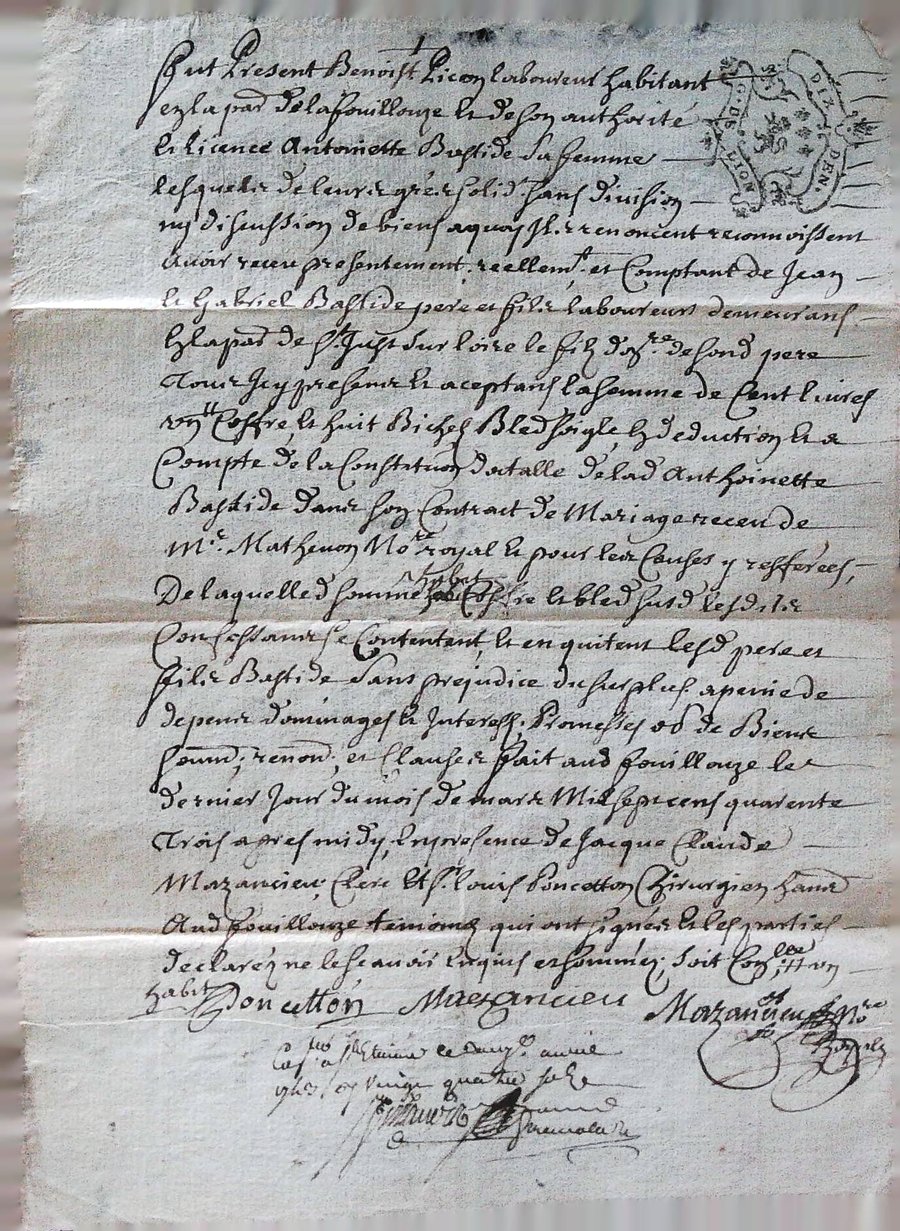 Fut Present Benoist Picon laboureur habitant
en la par de la fouillouze et de son authorité
et licence Antoinette Bastide sa femme
lesquels de leurs grés solid sans division
ny discussion de biens aquoy ils renoncent reconnoissent
avoir receu presentement reellem.t et Comptant de Jean
et Gabriel Bastide pere et fils laboureurs demeurans
en la par de st Just sur loire le fils de sond pere
Tous Icy presens et aceptans la somme de Cent livres
Coffre et huit Bichets Bled seigle en deduction et a
Compte de la Constitution dotalle de lad Anthoinette
Bastide dans son Contract de Mariage receu de
Mr. Mathevon No.re royal et pour les Causes y refferées,
De laquelle d somme Coffre et bled susd lesdits
Se Contentent, et en quitent lesd pere et
fils Bastide sans prejudice du surplus a peine de
depens dommages et Interests, Promesses ob de Biens
soum, renon, et Clauses fait aud fouillouze le
dernier Jour du mois de mars Mil sept cens quarente
Trois apres midy, en presence de Jacque Claude
Mazancieu Clerc et sr louis Poncetton Chirurgien
Aud fouillouze temoins qui ont signés et les parties
declaré ne le scavoir enquis et sommés, soit
habit
Poncetton Mazancieu Mazancieu No.re
Royal
a st Etienne ce avril
1743 vingt quatre sols